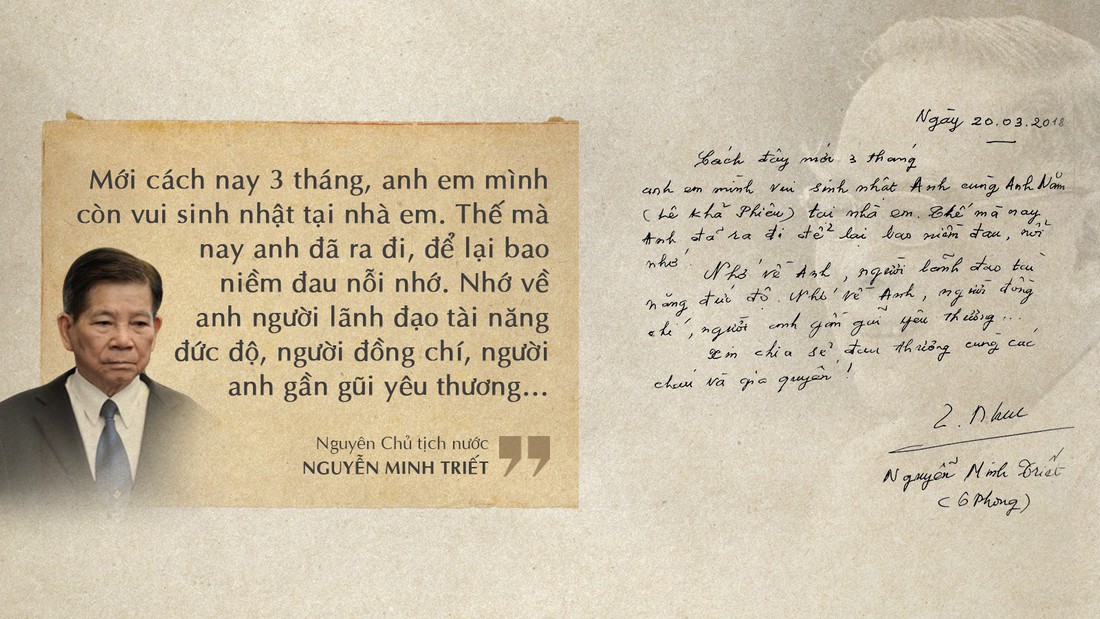 Mới cách nay 3 tháng, anh em mình
còn vui sinh nhật tại nhà em. Thế mà
nay anh đã ra đi, để lại bao
niềm đau nỗi nhớ. Nhớ về
anh người lãnh đạo tài năng
đức độ, người đồng chí, người
anh gần gũi yêu thương...
Nguyên Chủ tịch nước
NGUYỄN MINH TRIẾT
Ngày 20.03.2018
Cách đây mới 3 tháng
anh em mình vui sinh nhật Anh cùng Anh Năm
(Lê Khả Phiêu) tại nhà em. Thế mà nay
Anh đã ra đi để lại bao niềm đau, nỗi
nhớ.
Nhớ về Anh, người lãnh đạo tài
năng đức độ. Nhớ về Anh, người đồng
chí, người anh gần gũi yêu thương...
Xin chia sẻ đau thương cùng các
cháu và gia quyến!
Nguyễn Minh Triết
(6 Phong)